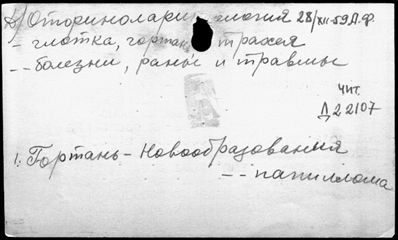 Оториноларингология 28/XII-59 Л.Ф.
- глотка, гортань, трахея
-- болезни, раны и травмы
Чит.
Д22107
1. Гортань - Новообразования
-- папиллома